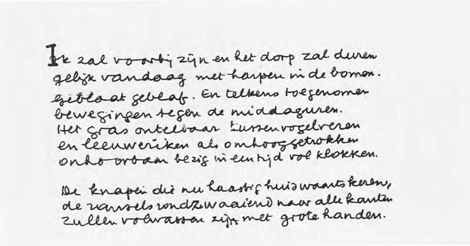 Ik zal voorbij zijn en het dorp zal duren
gelijk vandaag met harpen in de bomen.
geblaat geblaf. En telkens toegenomen
bewegingen tegen de middaguren.
Het gras ontelbaar tussen vogelveren
en leeuweriken als omhooggetrokken
onhoorbaar bezig in een tijd vol klokken.

De knapen die nu haastig huiswaarts keren,
de ransels rondzwaaiend naar alle kanten
zullen volwassen zijn met grote handen.